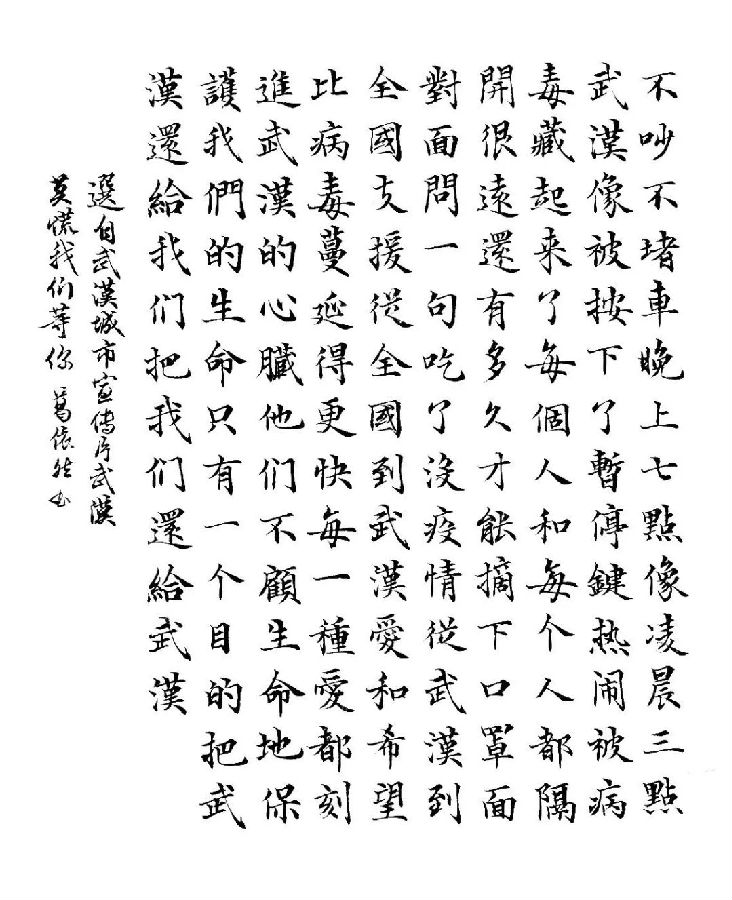 不吵不堵車晚上七點像凌晨三點
武漢像被按下了暫停鍵热闹被病
毒藏起来了每個人和每个人都隔
開很遠還有多久才能摘下口罩面
對面問一句吃了沒疫情従武漢到
全國支援従全國到武漢愛和希望
比病毒蔓延得更快每一種愛都刻
進武漢的心臟他们不顧生命地保
護我們的生命只有一个目的把武
漢還給我们把我们還給武漢
選自武漢城市宣传片武漢
莫慌我们等你 葛依然书